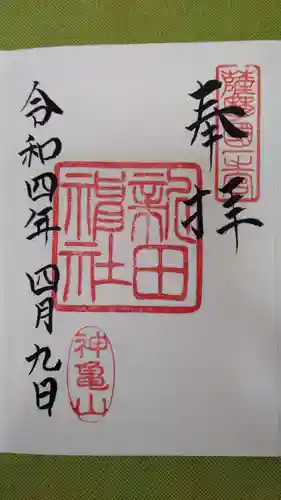 奉拝
薩摩國一宮
新田神社
神亀山
令和四年 四月九日